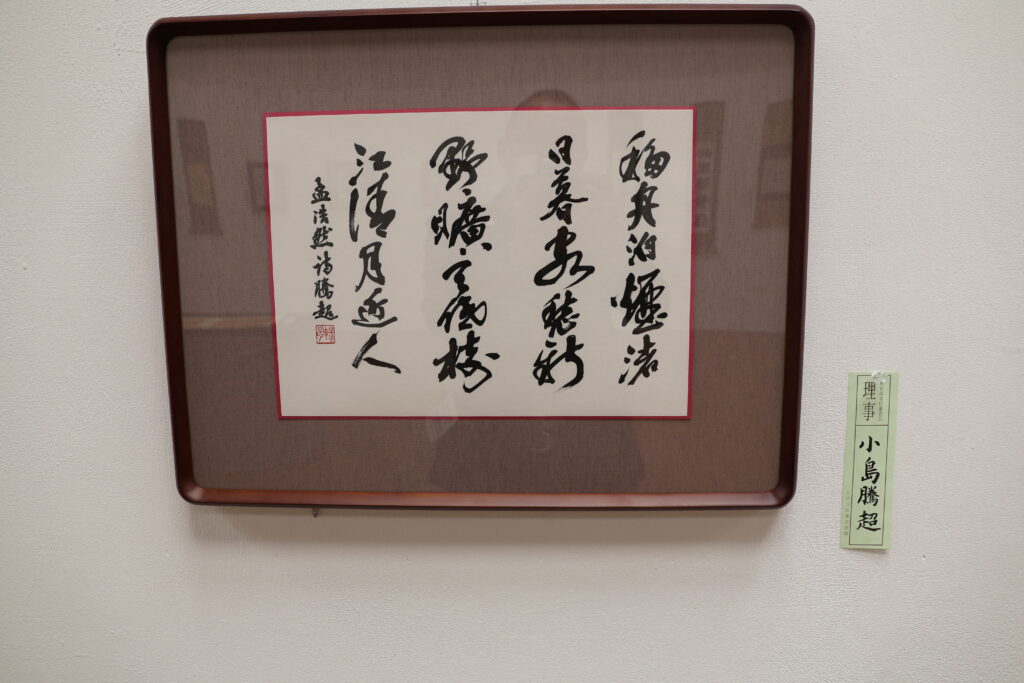 移舟泊煙渚
日暮客愁新
野曠天低樹
江清月近人
孟浩然詩騰超
理事
小島騰超